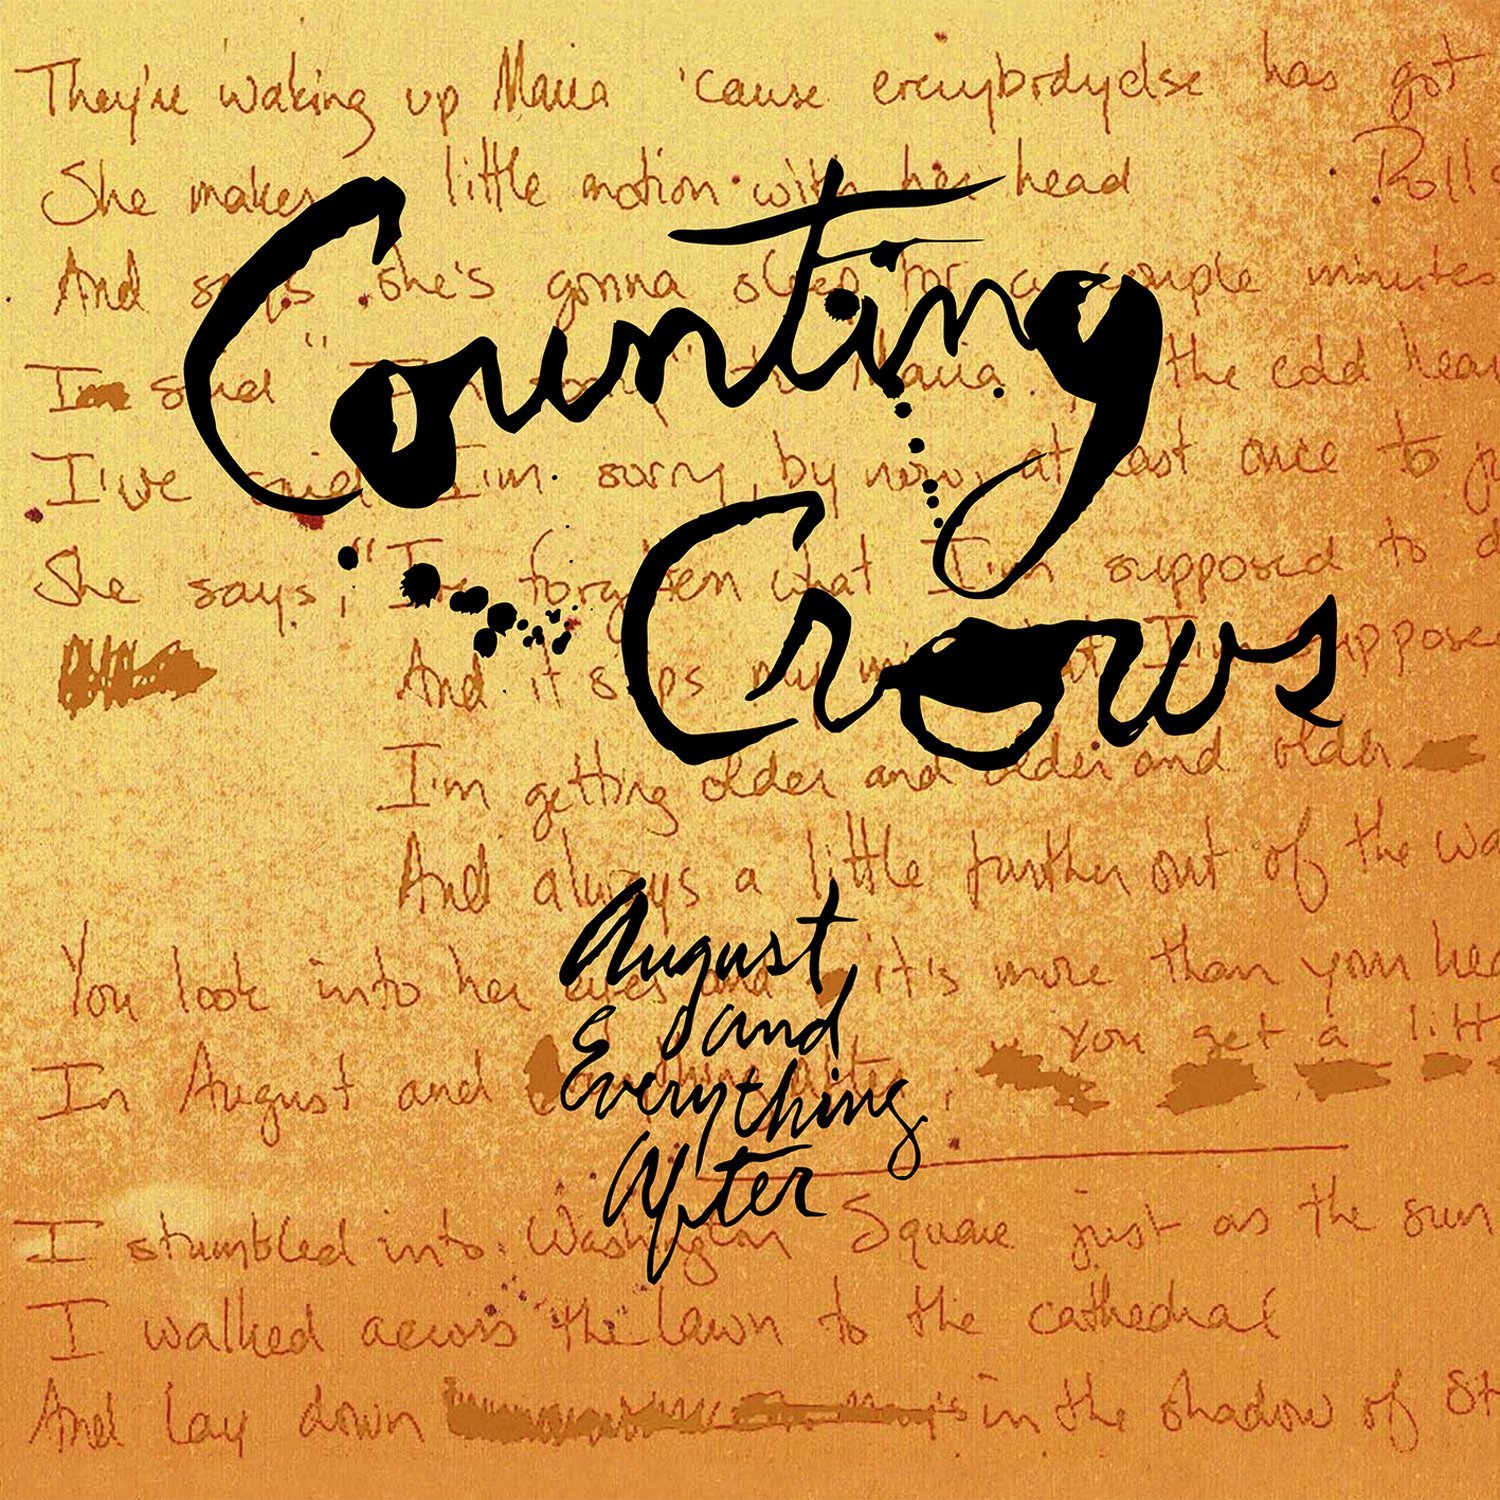 They're waking up Maria 'cause everybodyelse has got
She makes little motion with her head
Rolls
And says she's gonna sleep for a couple minutes
I said "I'm sorry" to Maria the cold
Counting
I've said I'm sorry by now, at last once to
Crows
She says, "I've forgotten what I'm supposed to
And it slips my I'm
I'm getting older and older and older
And always a little further out of the
August
and
Everything
After
You look into her eyes and it's more than your
In August and
You get a
I stumbled into Washington Square just as the sun
I walked across the lawn to the cathedral
And lay down in the shadow of St